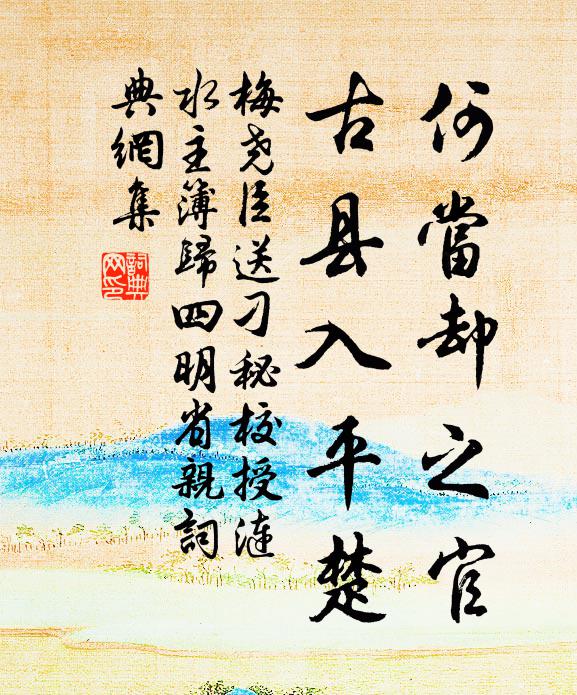 何當却之官
古县入平楚
梅尧臣送刁秘校授涟
水主簿歸四明省親詞
典網集
詞典
网印